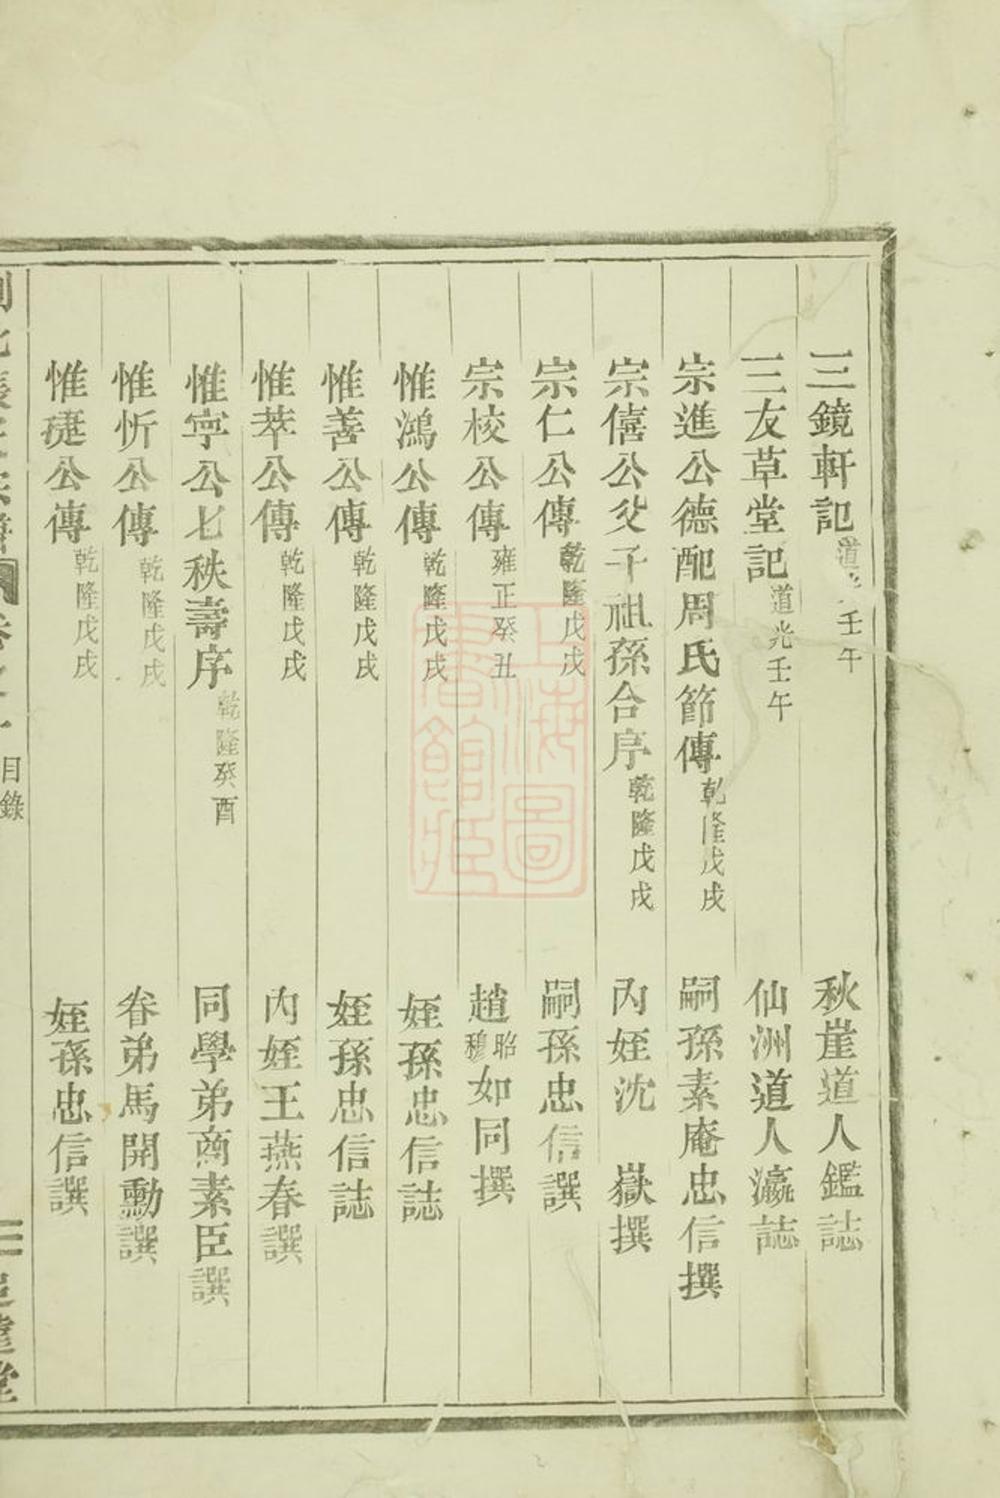 三鏡軒記 道光壬午 秋崖道人鑑誌
三友草堂記 道光壬午 仙洲道人瀛誌
宗進公德配周氏節傳 乾隆戊戌 嗣孫素庵忠信撰
宗僖公父子祖孫合序 乾隆戊戌 內姪沈嶽撰
宗仁公傳 乾隆戊戌 嗣孫忠信譔
宗校公傳 雍正癸丑 趙昭穆如同撰
惟鴻公傳 乾隆戊戌 姪孫忠信誌
惟善公傳 乾隆戊戌 姪孫忠信誌
惟萃公傳 乾隆戊戌 內姪王燕春譔
惟寧公七秩壽序 乾隆癸酉 同學弟商素臣譔
惟忻公傳 乾隆戊戌 眷弟馬開勳譔
惟㨗公傳 乾隆戊戌 姪孫忠信譔
卷之一 目錄 三
上海圖書館藏